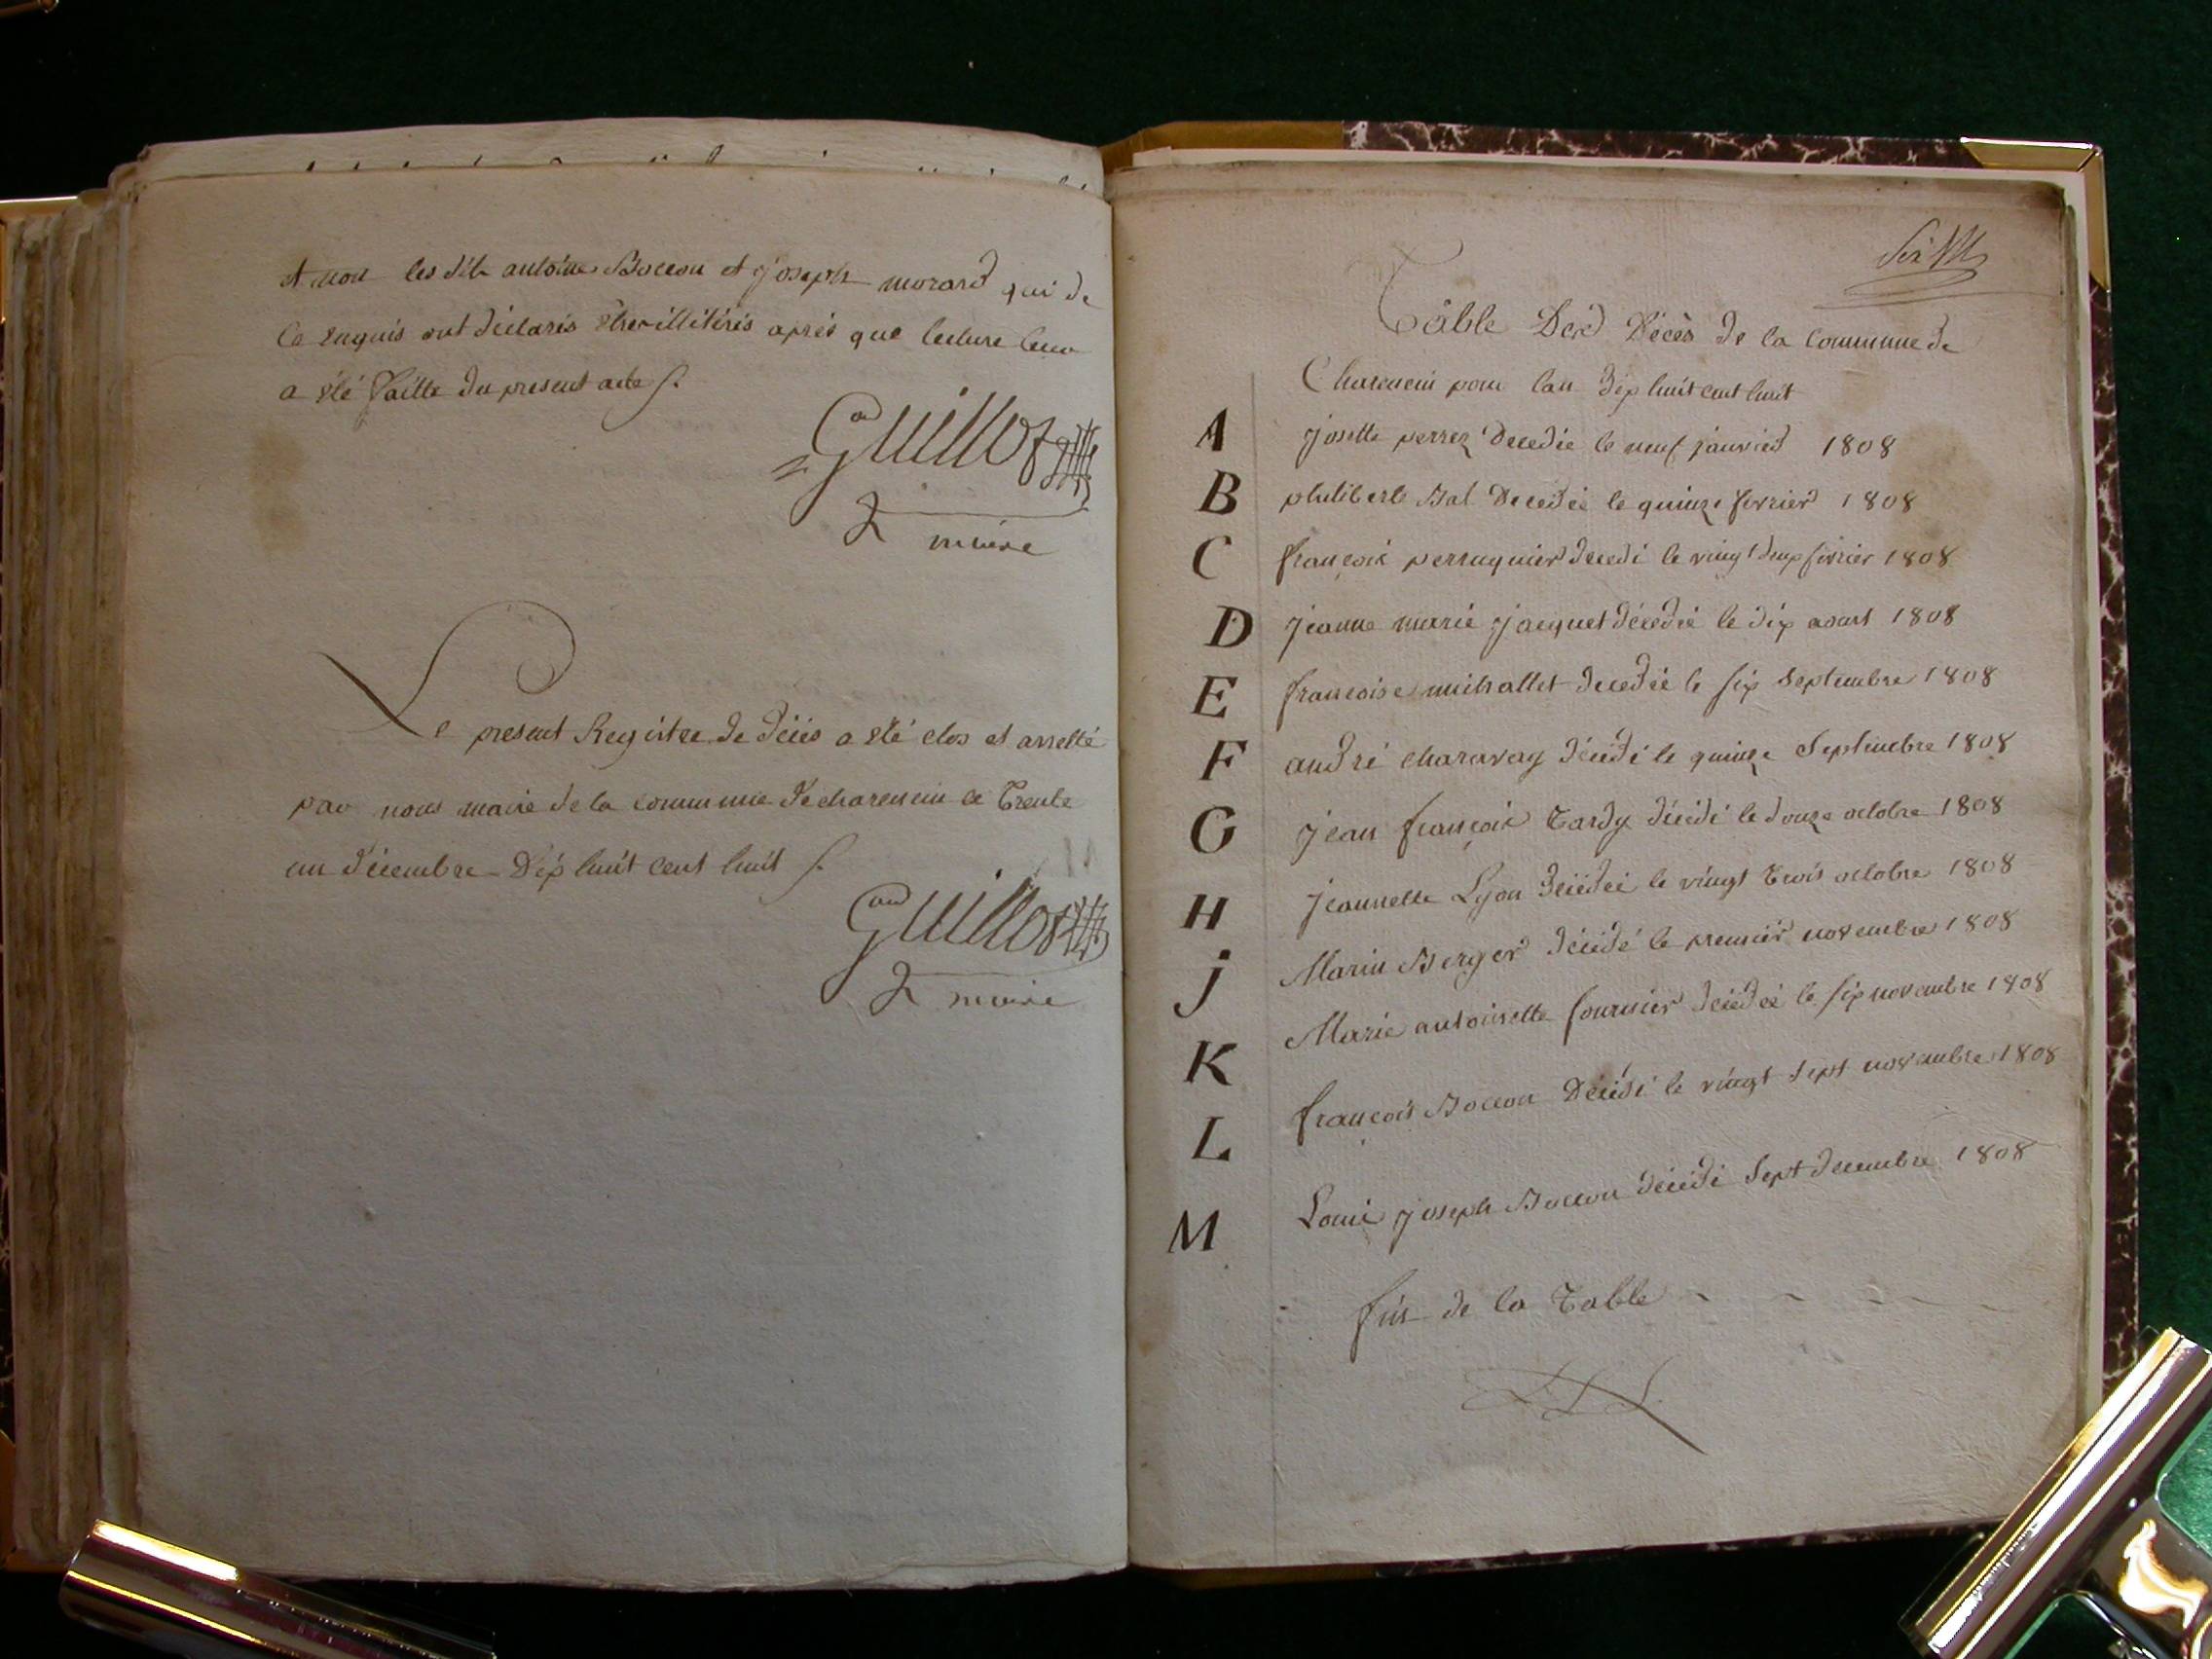 et non les dits antoine Boccon et joseph morard qui de
ce enquis ont déclarés être illitérés aprés que lecture leur
a été faitte du present acte
Guillot
maire
Le present Registre de décés a été clos et arretté
par nous maire de la commune de charencin ce Trente
un décembre Dix huit cent huit
Guillot
maire
Table Des Décès de la Commune de
Charencin pour l'an dix huit cent huit
A josette perrez Decedée le neuf janvier 1808
B philiberte Bal Decedée le quinze fevrier 1808
C françois perruquier decedé le vingt deux février 1808
D jeanne marie jacquet décédée le dix aoust 1808
E francoise michallet decedée le six Septembre 1808
F andré charavay décédé le quinze Septembre 1808
G jean françois Tardy décédé le douze octobre 1808
H jeannette Lyon décédée le vingt trois octobre 1808
j Marin Berger décédé le premier novembre 1808
K Marie antoinette fournier décédée le six novembre 1808
L francois Boccon Décédé le vingt sept novembre 1808
M Louis joseph Boccon décédé Sept decembre 1808
fin de la Table